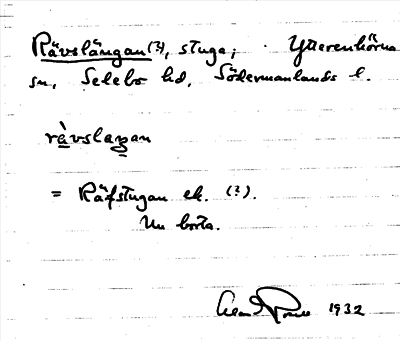 Rävslängan (?), stuga; Ytterenhörna
sn, Selebo hd, Södermanlands l.
rävslaŋan
= Räfstugan ek. (?).
Nu borta.
1932